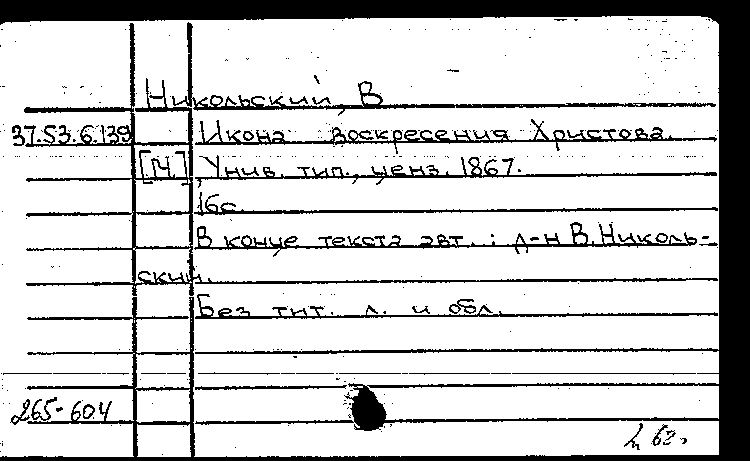 Никольский, В
37.53.6.139 Икона воскресения Христова.
[М.], Унив. тип., ценз. 1867.
16с.
В конце текста авт. : д-н В. Николь-
ский.
Без тит. л. и обл.
265-604